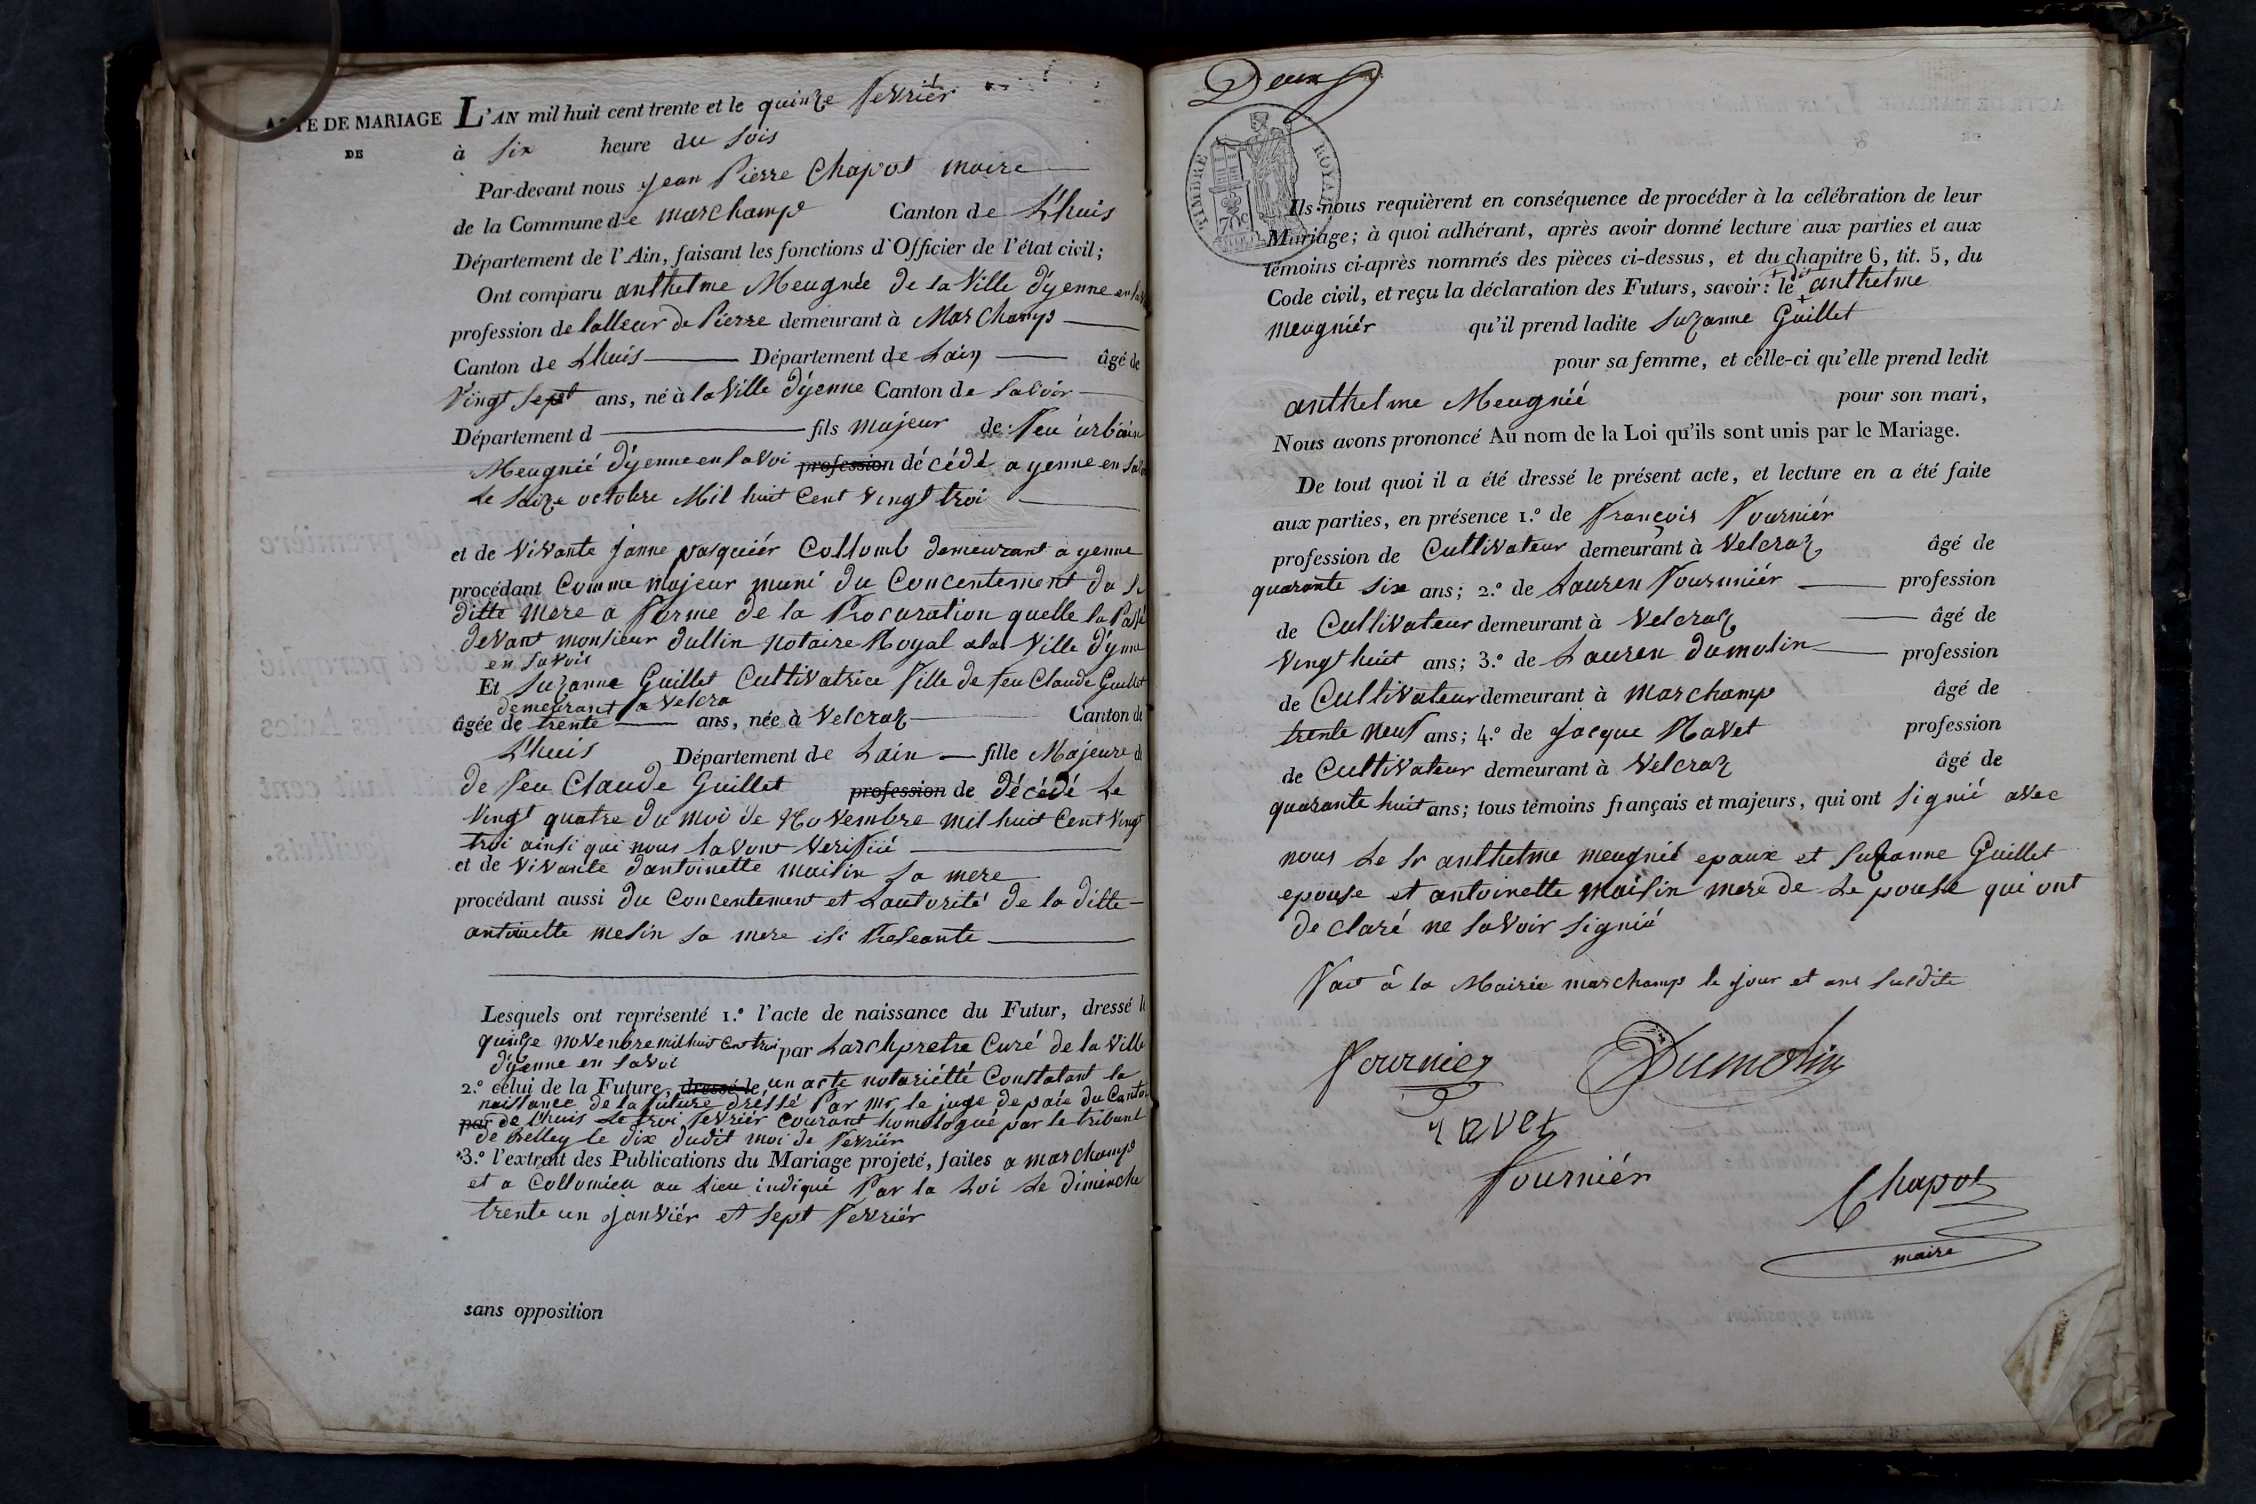 ACTE DE MARIAGE
DE
L'AN mil huit cent trente et le quinze fevriér
à six heure du soir
Par-devant nous jean Pierre Chapot maire
de la Commune de marchamp Canton de Lhuis
Département de l'Ain, faisant les fonctions d'Officier de l'état civil;
Ont comparu anthelme Meugnié de la Ville d'yenne en
profession de talleur de Pierre demeurant à Marchamp
Canton de Lhuis Département de Lain âgé de
Vingt sept ans, né à la Ville d'yenne Canton de Savoir
Département d fils majeur de feu urbain
Meugnié d'yenne en Savoi profession décédé a yenne en
le saize octobre Mil huit Cent vingt troi
et de vivante janne pasquiér Collomb demeurant a yenne
procédant Comme majeur muni du Concentement da
ditte mere a forme de la Procuration quelle la Passé
devant monsieur dullin notaire Royal ala Ville d'yenne
en Savoir
Et Suzanne Guillet Cultivatrice fille de feu Claude Guillet
demeurant a Velcra
âgée de trente ans, née à Velcraz Canton de
Lhuis Département de Lain fille Majeure de
de feu Claude Guillet profession de décédé Le
vingt quatre du moi de Novembre mil huit Cent vingt
troi ainsi qui nous lavont verifiié
et de vivante dantoinette maisin sa mere
procédant aussi du Concentement et Lautorité de la ditte
antoinette mesin sa mere isi Preseante
Lesquels ont représenté 1.º l'acte de naissance du Futur, dressé le
quinze novenbre mil huit Cent troi par Larchpretre Curé de la Ville
d'yenne en Savoi
2.º celui de la Future, dressé le un acte notariétté Constatant la
naissance de la future dréssé Par mr le juge de paie du Canton
par de Lhuis le troi fevriér courant homologué par le tribunt
de Belley le dix dudit moi de fevriér
3.º l'extrait des Publications du Mariage projeté, faites a marchamp
et a Collomieu au Lieu indiqué Par la Loi Le dimenche
trente un janviér et sept fevriér
sans opposition
Deux
TIMBRE ROYAL
70c
Ils nous requièrent en conséquence de procéder à la célébration de leur
Mariage; à quoi adhérant, après avoir donné lecture aux parties et aux
témoins ci-après nommés des pièces ci-dessus, et du chapitre 6, tit. 5, du
Code civil, et reçu la déclaration des Futurs, savoir: le dit anthelme
meugniér qu'il prend ladite Suzanne Guillet
pour sa femme, et celle-ci qu'elle prend ledit
anthelme Meugnié pour son mari,
Nous avons prononcé Au nom de la Loi qu'ils sont unis par le Mariage.
De tout quoi il a été dressé le présent acte, et lecture en a été faite
aux parties, en présence 1.º de françois fourniér
profession de Cultivateur demeurant à Velcraz âgé de
quarante six ans; 2.º de Lauren fourniér profession
de Cultivateur demeurant à Velcraz âgé de
vingt huit ans; 3.º de Lauren dumolin profession
de Cultivateur demeurant à marchamp âgé de
trente neuf ans; 4.º de jacque Ravet profession
de Cultivateur demeurant à Velcraz âgé de
quarante huit ans; tous témoins français et majeurs, qui ont signié avec
nous Le Sr anthelme meugnié epoux et Suzanne Guillet
epouse et antoinette maisin mere de Le pouse qui ont
de claré ne Savoir signié
fait à la Mairie marchamp le jour et ans susdite
fournier
Dumolin
ravet
fourniér
Chapot
maire